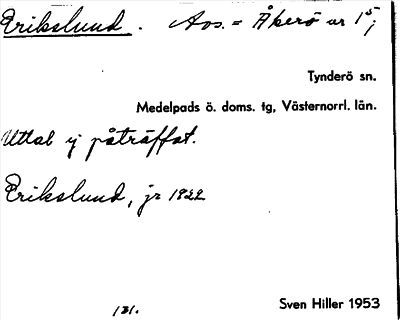 Erikslund. Avs. = Åkerö nr 1⁵;
Tynderö sn.
Medelpads ö. doms. tg, Västernorrl. län.
Uttal ej påträffat.
Erikslund, jr 1922
131.
Sven Hiller 1953